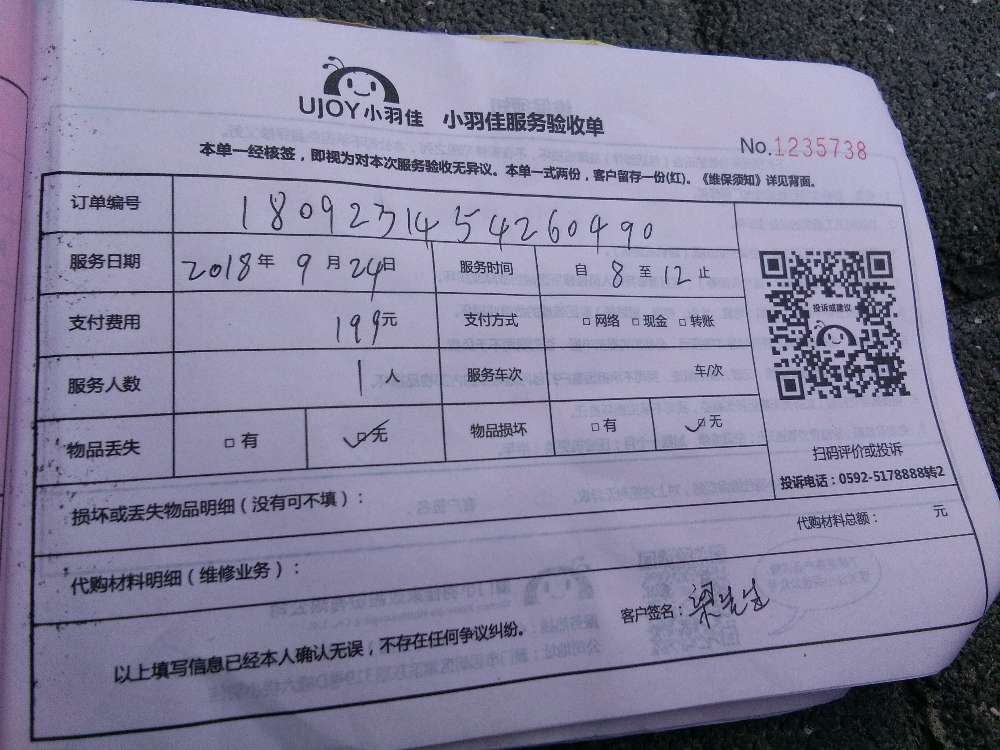 UJOY小羽佳 小羽佳服务验收单
No.1235738
本单一经核签，即视为对本次服务验收无异议。本单一式两份，客户留存一份(红)。《维保须知》详见背面。
订单编号 1809231454260490
服务日期 2018年 9月 24日 服务时间 自 8 至 12 止
支付费用 199元 支付方式 □网络 □现金 □转账
服务人数 1人 服务车次 车/次
物品丢失 □有 ☑无 物品损坏 □有 ☑无
投诉或建议
扫码评价或投诉
投诉电话：0592-5178888转2
损坏或丢失物品明细（没有可不填）：
代购材料明细（维修业务）： 代购材料总额： 元
以上填写信息已经本人确认无误，不存在任何争议纠纷。 客户签名：梁先生